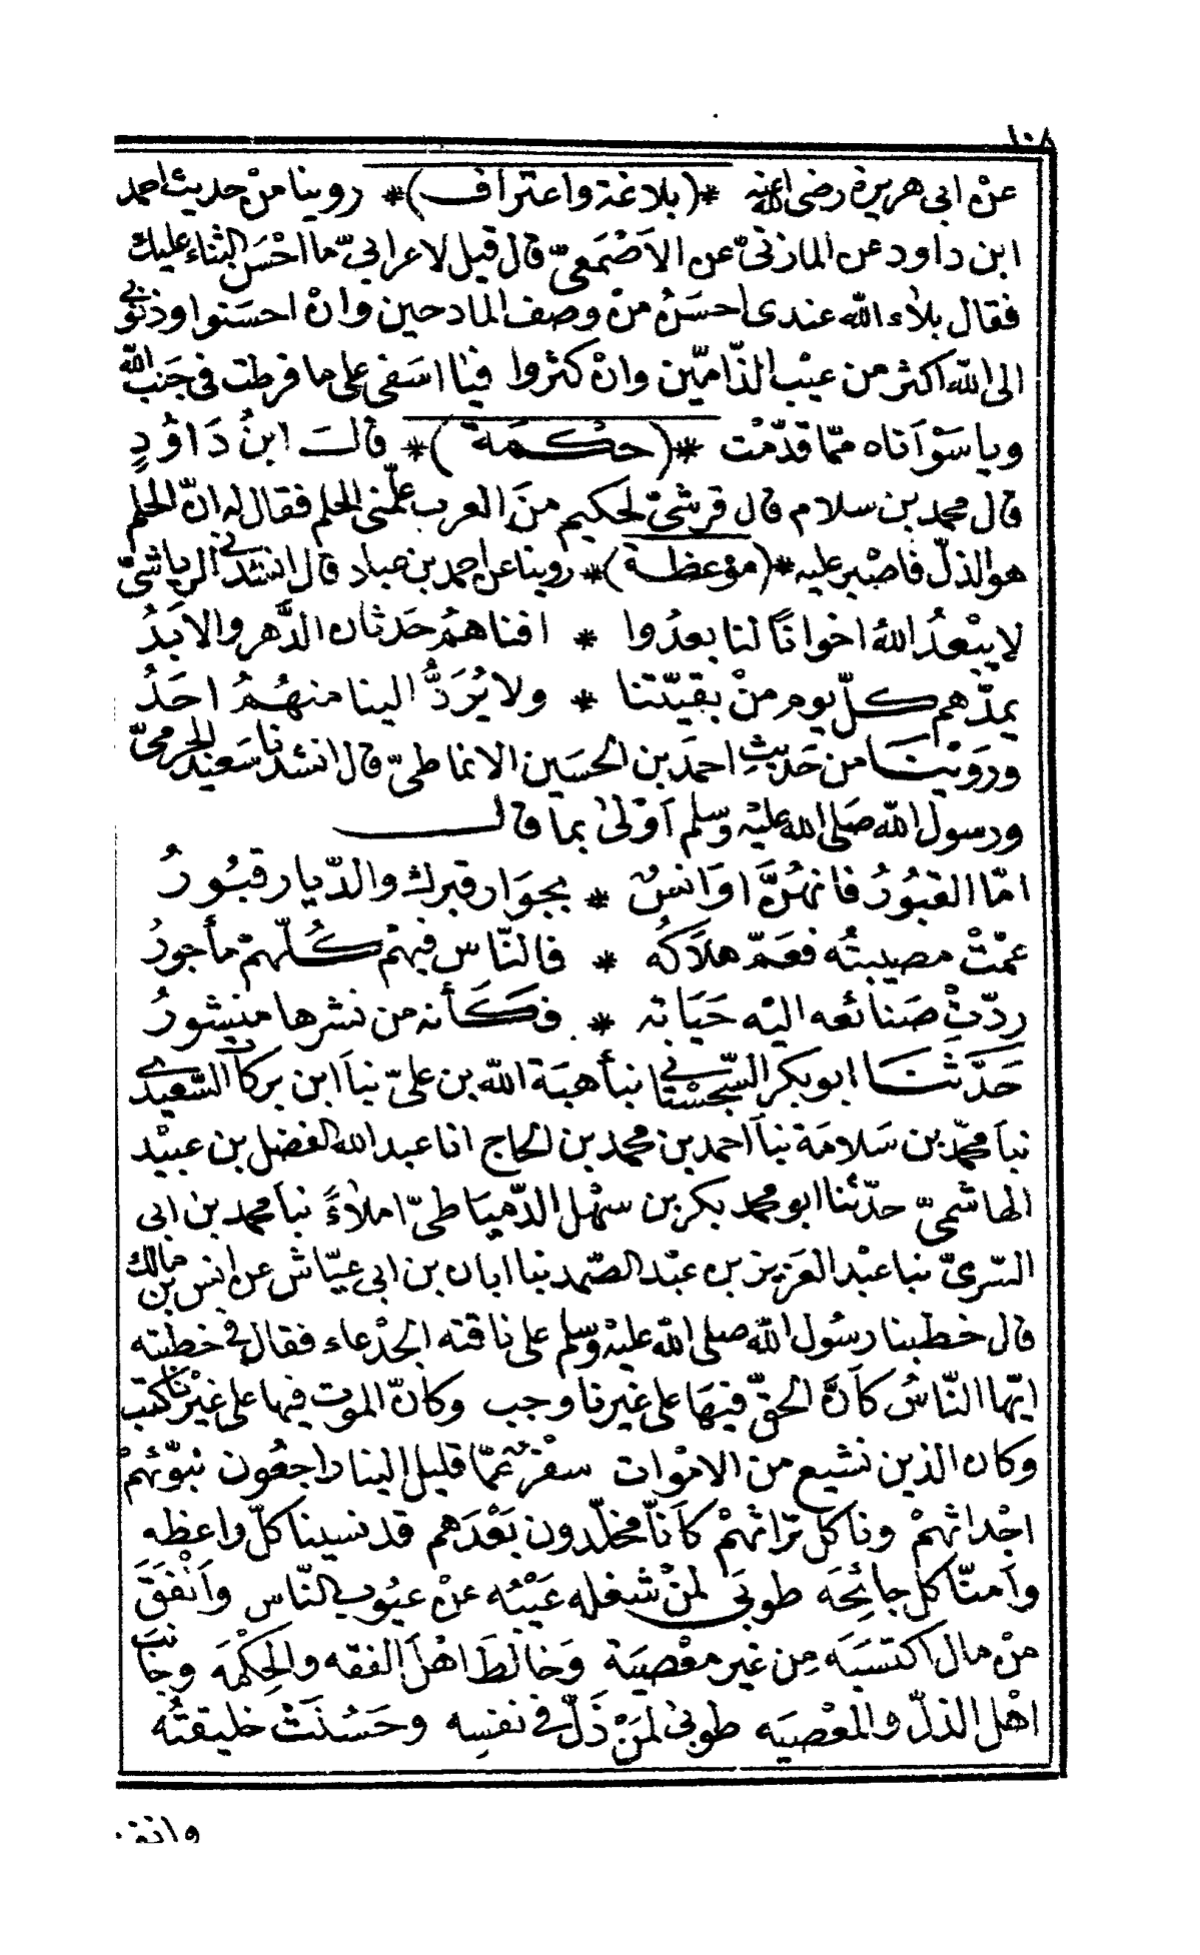 ١٠٨
عنْ ابى هريرة رضى الله عنه *(بلاغة واعتراف)* روينا منْ حديث احمد
ابن داود عن المازنىّ عن الاَصْمَعىّ قال قيل لاعرابىّ ما احْسَن الثناء عليك
فقال بلاء الله عندى احسَنُ منْ وصف المادحين وانْ احسَنوا وذنوبى
الى الله اكثر من عيْب الذّامّين وانْ كثروا فيا اسَفى على ما فرطت فى جَنب الله
ويا سَوْآتاه ممّا قدّمْت *(حكمة)* قال ابنُ دَاوُدٍ
قال محمد بن سلام قال قرشىّ لحكيم منَ العرب علّمنى الحلم فقال له انّ الحلم
هو الذلّ فاصْبر عليه *(موْعظة)* روينا عن احمد بن عباد قال انشدنى الرياشىّ
لا يبْعدُ اللهُ اخوانًا لنا بعدُوا * افناهمُ حَدثان الدَّهر والاَبَدُ
يمدّهم كلّ يوم منْ بقيّتنا * ولا يُرَدُّ الينا منهُمُ احَدُ
ورَوَيْنَا من حَديثِ احمدَ بن الحسَين الانماطىّ قال انشدنا سَعيد الجرمىّ
ورسول الله صَلى الله عليْه وسَلم اَوْلى بما قال
امّا القبُورُ فانهُنَّ اوَانسٌ * بجوَار قبرك والدّيار قبُورُ
عمّتْ مصيبتُه فعَمّ هلاَكُه * فالنّاس فيهمْ كُلّهمْ مأجورُ
ردّتْ صَنائعه اليْه حَيَاته * فكَأنه من نشرها منشورُ
حَدَّثَنَا ابو بكر السّجسْتانى نبأ هبَة الله بن علىّ نبأ ابن بركات السّعيدى
نبأ محمّد بن سَلامَة نبأ احمد بن محمد بن الحاج انا عبد الله الفضل بن عبيْد
الهاشمىّ حدّثنا ابو محمد بكر بن سهْل الدّميَاطىّ املاءً نبأ محمد بن ابى
السّرىّ نبا عبْد العَزيز بن عبْد الصّمد نبا ابان بن ابى عيّاش عن انس بن مالك
قال خطبنا رسُول الله صلى الله عليْه وسَلم على ناقته الجدْعاء فقال فى خطبته
ايّها النّاسُ كاَنَّ الحقّ فيهَا على غيرنا وجب وكانّ الموت فيها على غيْرنا كتب
وكان الذين نشيع من الامْوات سفْرٌ عمّا قليل الينا راجعُون نبوّئهمْ
اجْداثهمْ وناكل تراثهمْ كاَنّا مخلّدون بَعْدَهم قد نسينا كلّ واعظه
واَمنّا كل جائحَه طوبَى لمنْ شغله عَيْبُه عنْ عيُوب النّاس واَنْفَقَ
منْ مال اكتسَبَه مِن غير معْصيَة وَخالطَ اهْل الفقه والحِكْمَه وجَانَبَ
اهْل الذلّ والمعْصيَه طوبىٰ لمَنْ ذَلّ فى نفسِه وحَسُنَتْ خليقتُه